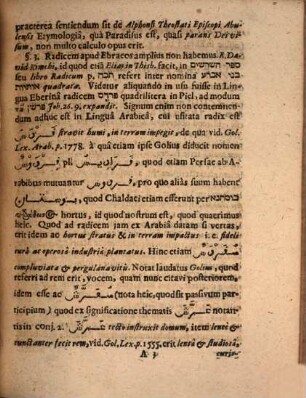 præterea sentiendum sit de Alphonsi Thostati Episcopi Abu-
lensis Etymologiâ, quâ Paradisus est, quasi parans Dei vi-
sum, non multo calculo opus erit.
§. 3. Radicem apud Ebraeos amplius non habemus. R. Da-
vid Kimchi, id quod etiâ Elias in Thisb. facit, in ספר השרשים
seu libro Radicum p. refert inter nomina בני ארבע
אותיות quadrata. Videtur aliquando in usu fuisse in Lin-
gua Eberina radicem quadrilitera in Piel, ad modum
Job. 26. 9. expandit. Signum enim non contemnen-
dum adhuc est in Linguâ Arabicâ, cui usitata radix est
stravit humi, in terram impegit, de qua vid. Gol.
Lex. Arab. p. 1778. à quâ etiam ipse Golius diducit nomen
فردوس pl. فراديس, quod etiam Persae ab A-
rabibus mutuantur فردوس, pro quo aliàs suum habent
بوستان, quod Chaldaei etiam efferunt per בוסתנא
& hortus, id quod nostrum est, quod quaerimus
hîc. Quod ad radicem jam ex Arabiâ datam si veras,
erit idem ac hortus stratus & in terram impactus i. e. soli-
curâ ac operosâ industriâ plantatus. Hinc etiam
complurata & pergulanea vitis. Notat laudatus Golius, quod
referri ad rem erit, vocem, quam nunc citavi posteriorem,
idem esse ac (nota hîc, quod sit passivum par-
ticipium) quod ex significatione thematis noran-
tis in conj. 2. tecto instruxit domum, item lentè &
cunctanter fecit rem, vid. Gol. Lex. p. 1555. erit lentâ & studiosâ,
A 3 curio-